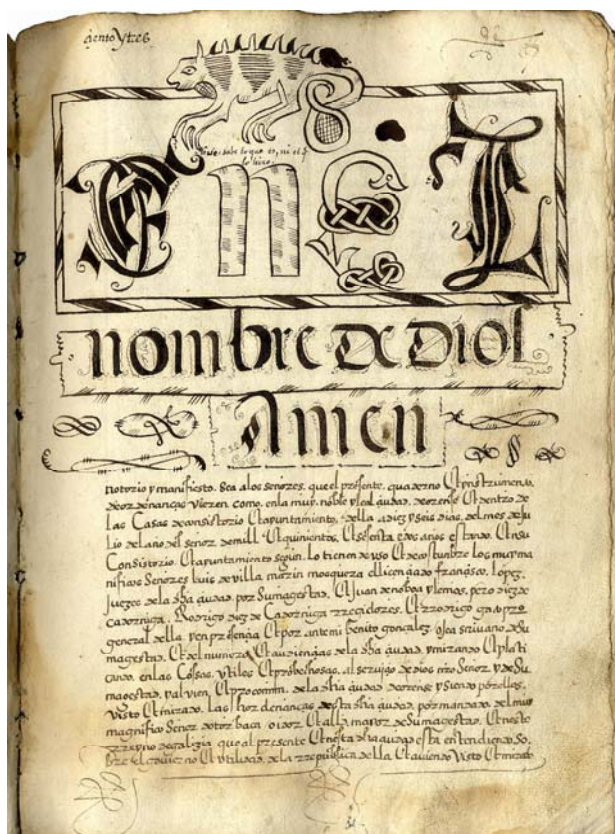 çiento y tres
En el
nombre de dios
Amen
notorio y manifiesto. Sea a los señores. que el presente. quaderno Et ynstrumento
de ordenanças vieren como. en la muy. noble y leal çiudad. de orense Et dentro de
Las Casas de consistorio Et apuntamiento. della. a diez y seis dias. del mes de Ju
Lio del año del señor de mill. Et quinientos. Et
Consistorio. Et apuntamiento segun. Lo tienen de uso Et de costunbre los muy ma
nificos Señores Luis de villa marin mosquera el licençiado françisco. Lopez.
Juezes de la dha çiudad. por Su magestad. Et Juan de noboa y lemos. pero diez de
cadorniga. Rodrigo diez de Cadorniga rregidores. Et rrodrigo
general della y en presençia Et por ante mi benito gonçalez. escrivano de Su
magestad. Et del numero Et audiençias de la dha çiudad. y mirando Et plati
cando. en las Cossas. utiles Et probechosas. al serviçio de dios nro Señor y de Su
magestad. y al vien. Et pro comun. de la dha çiudad de orense y siendo por ellos.
visto Et mirado. Las hordenanças desta dha çiudad. por mandado. del muy
magnifico Señor dotor oidor. Et alld. mayor de Su magestad. En este
rreyno de galizia que al presente En esta dha çiudad esta entendiendo. So
bre el govierno Et utilidad. de la rrepublica della Et aviendo Visto Et mirado